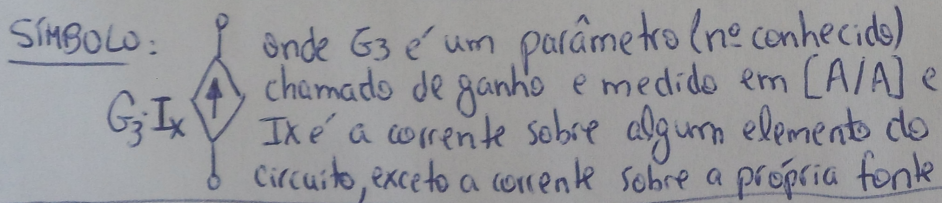 SÍMBOLO: onde G3 é um parâmetro (nº conhecido)
chamado de ganho e medido em [A/A] e
G3.Ix Ix é a corrente sobre algum elemento do
circuito, exceto a corrente sobre a própria fonte